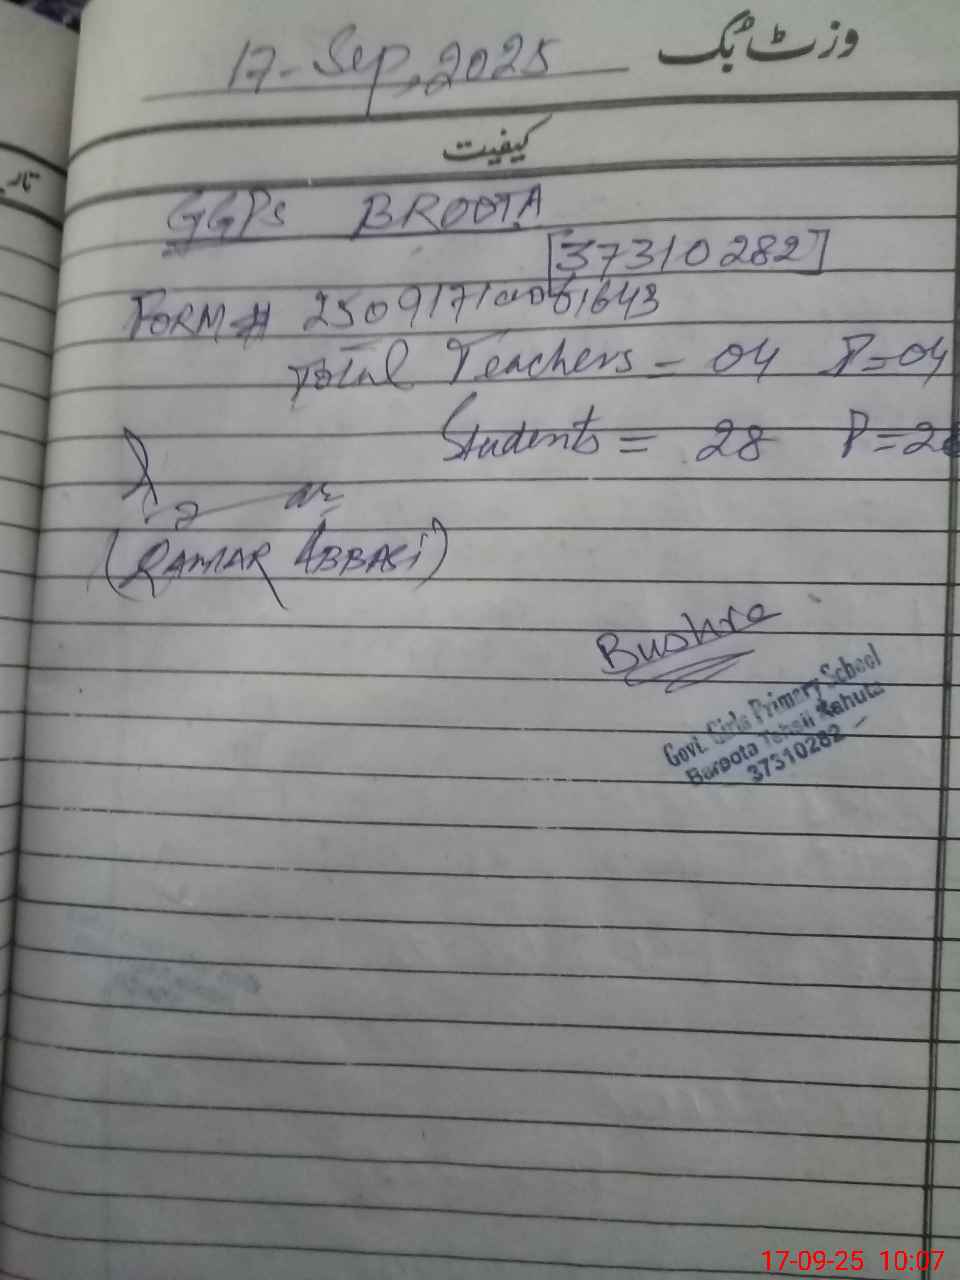 17-Sep, 2025 وزٹ بک
کیفیت
GGPS BROOTA
[37310282]
FORM# 
Total Teachers = 04 P=04
Students = 28 P=2
(QAMAR ABBASI)
Bushra
Govt. Girls Primary School
Baroota Tehsil Kahuta
37310282
17-09-25 10:07